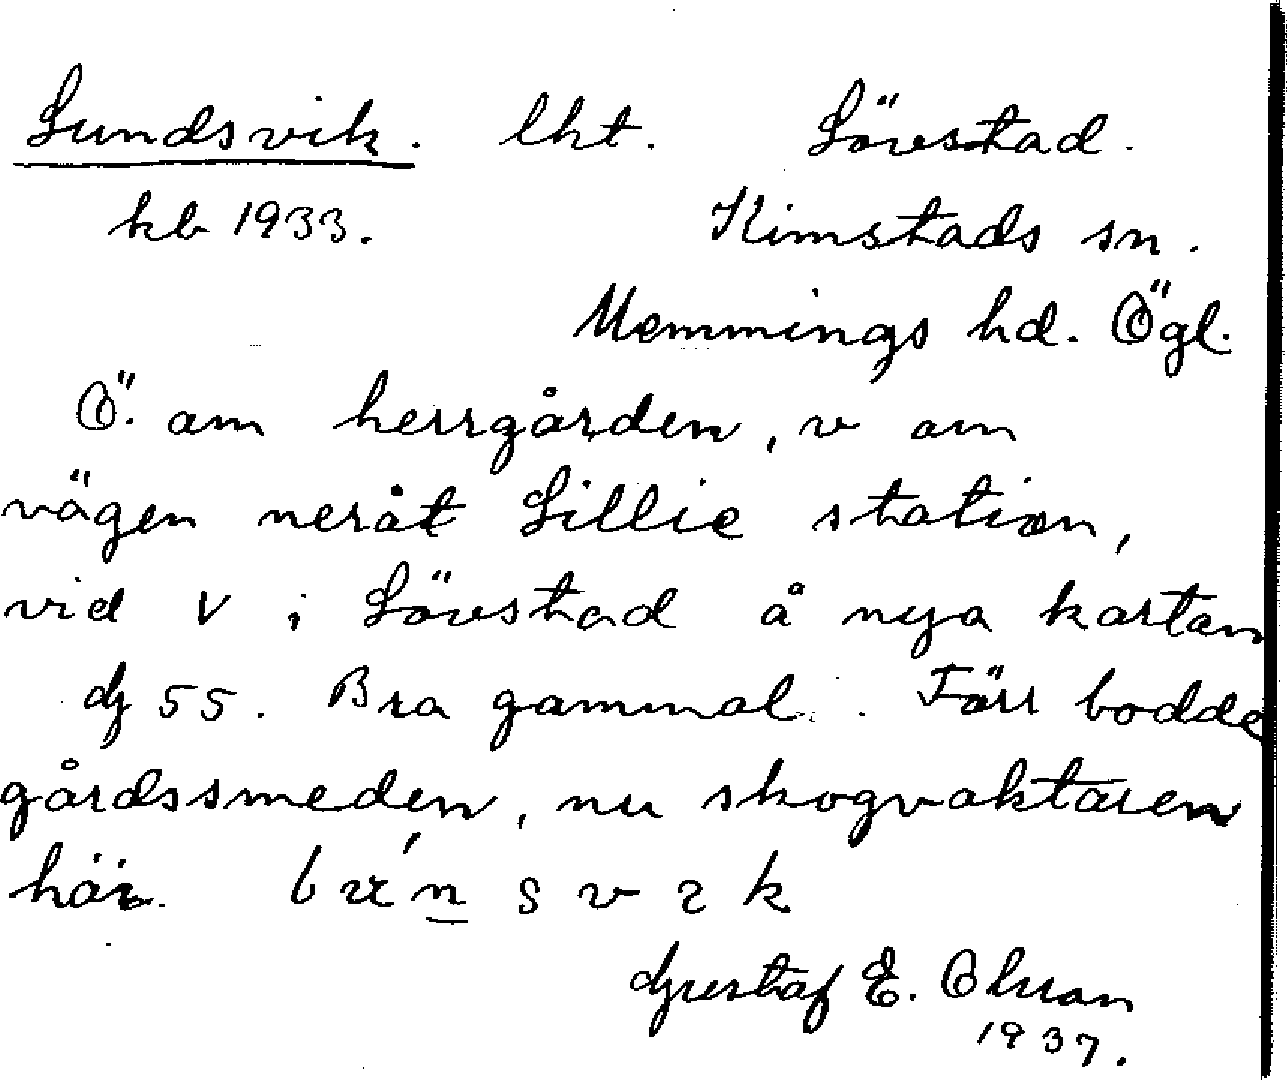 Lundsvik. lht. Lövstad.
kb 1933. Kimstads sn.
Memmings hd. Ögl.
Ö. om herrgården, v om
vägen neråt Lillie station,
vid V i Lövstad å nya kartan
G 55. Bra gammal. Förr bodde
gårdssmeden, nu skogvaktaren
här.
Gustaf E. Olsson
1937.